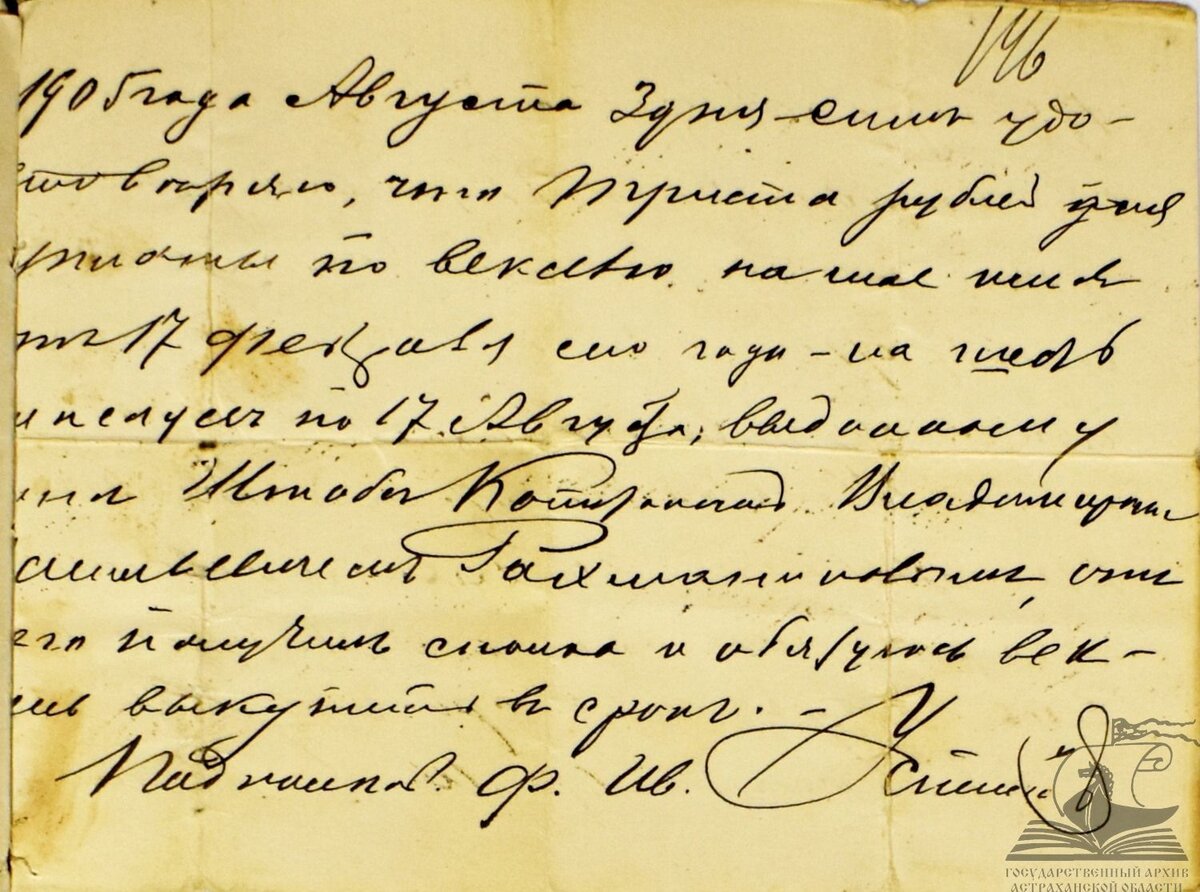 146
1905 года Августа 3 дня симъ удо-
стоверяю, что триста рублей у меня
приняты по векселю на мое имя
отъ 17 февраля сего года - на шесть
месяцевъ по 17 Августа, выданному
Штабсъ Капитаномъ Владимиромъ
Васильевичемъ Рахманиновымъ, эти
его получилъ сполна и обязуюсь век-
сель выкупить въ срокъ. -
Ф. Ив.
ГОСУДАРСТВЕННЫЙ АРХИВ
АСТРАХАНСКОЙ ОБЛАСТИ